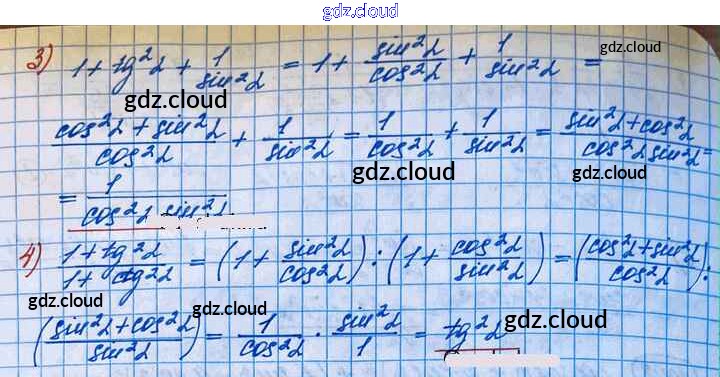 gdz.cloud
3) 1 + tg²α + 1/sin²α = 1 + sin²α/cos²α + 1/sin²α = gdz.cloud
gdz.cloud
(cos²α + sin²α)/cos²α + 1/sin²α = 1/cos²α + 1/sin²α = (sin²α + cos²α)/(cos²α sin²α) =
gdz.cloud gdz.cloud
= 1/(cos²α sin²α)
gdz.cloud
4) (1 + tg²α)/(1 + ctg²α) = (1 + sin²α/cos²α) : (1 + cos²α/sin²α) = ((cos²α + sin²α)/cos²α) :
gdz.cloud gdz.cloud gdz.cloud
((sin²α + cos²α)/sin²α) = 1/cos²α · sin²α/1 = tg²α
gdz.cloud gdz.cloud